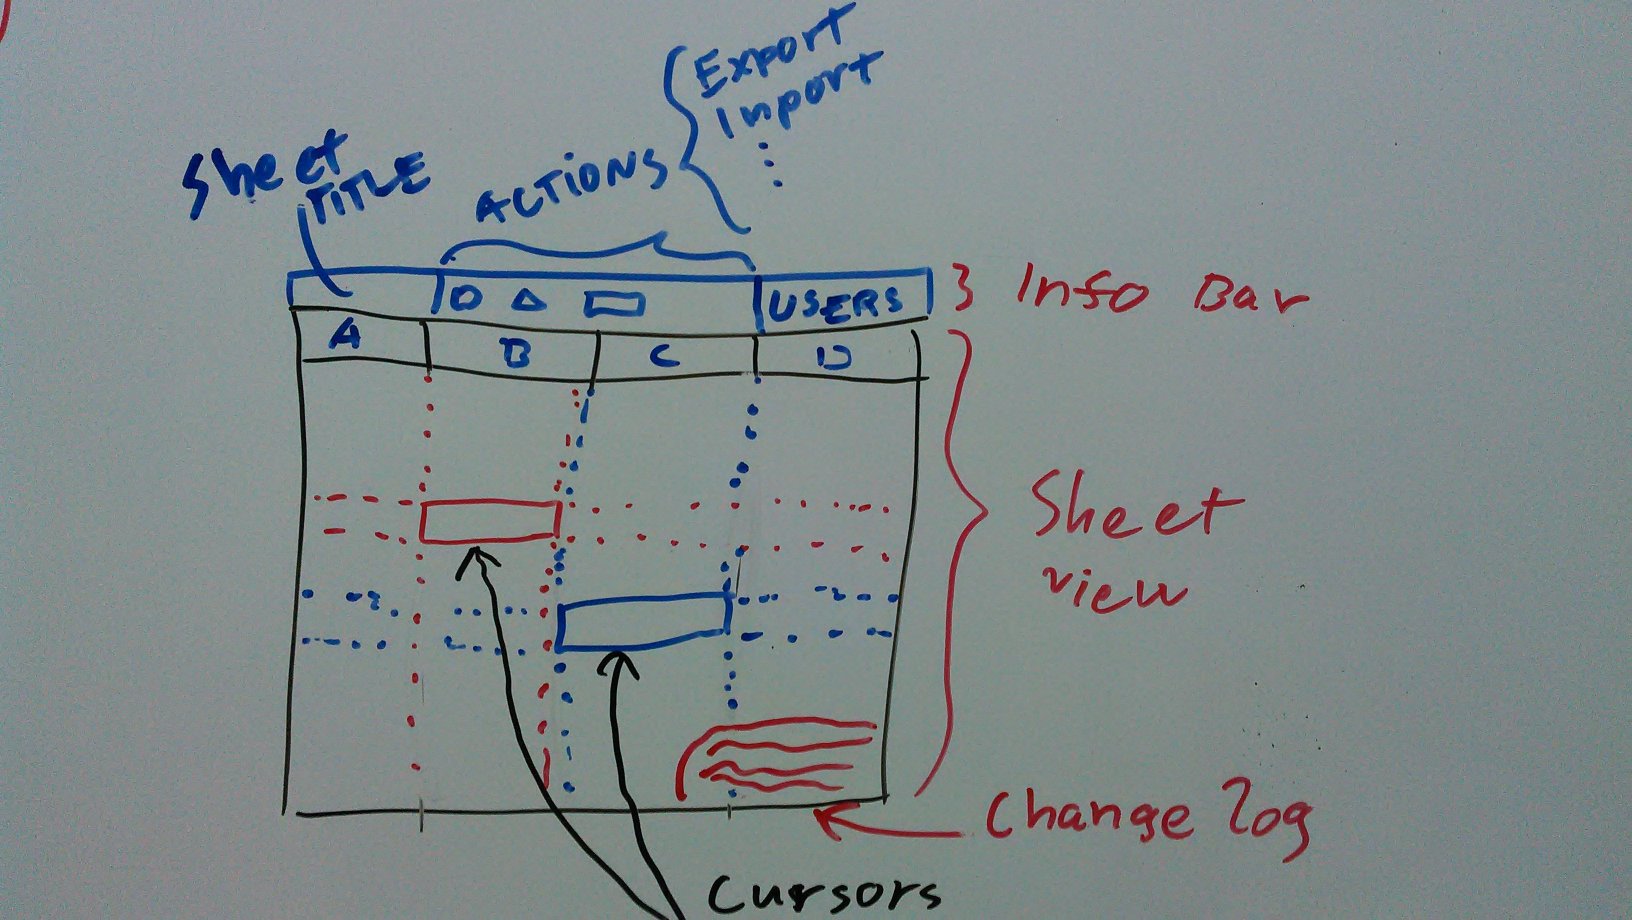 Export
Inport
Sheet
TITLE
ACTIONS
USERS
Info Bar
A B C D
Sheet
view
Change log
Cursors